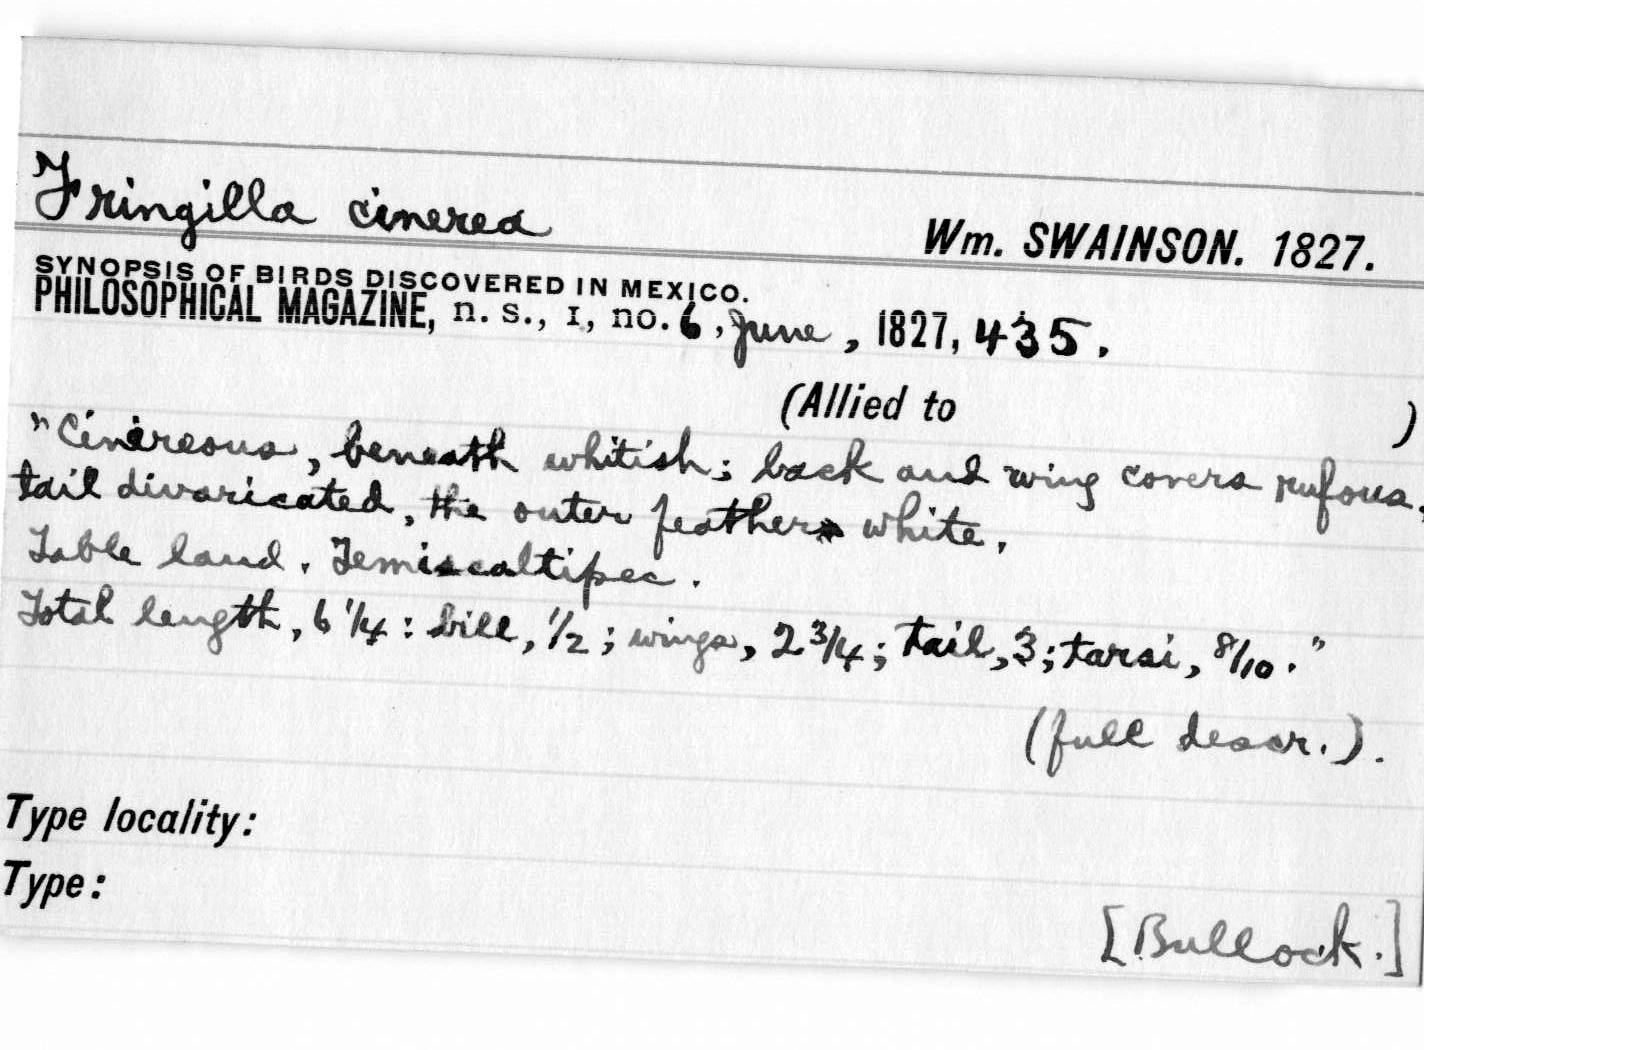 Fringilla cinerea
Wm. SWAINSON. 1827.
SYNOPSIS OF BIRDS DISCOVERED IN MEXICO.
PHILOSOPHICAL MAGAZINE, n. s., I, no. 6, June, 1827, 435.
(Allied to )
"Cinereous, beneath whitish; back and wing covers rufous.
tail divaricated, the outer feathers white.
Table land. Temiscaltipec.
Total length, 6 1/4: bill, 1/2; wings, 2 3/4; tail, 3; tarsi, 8/10."
(full descr.).
Type locality:
Type:
[Bullock.]